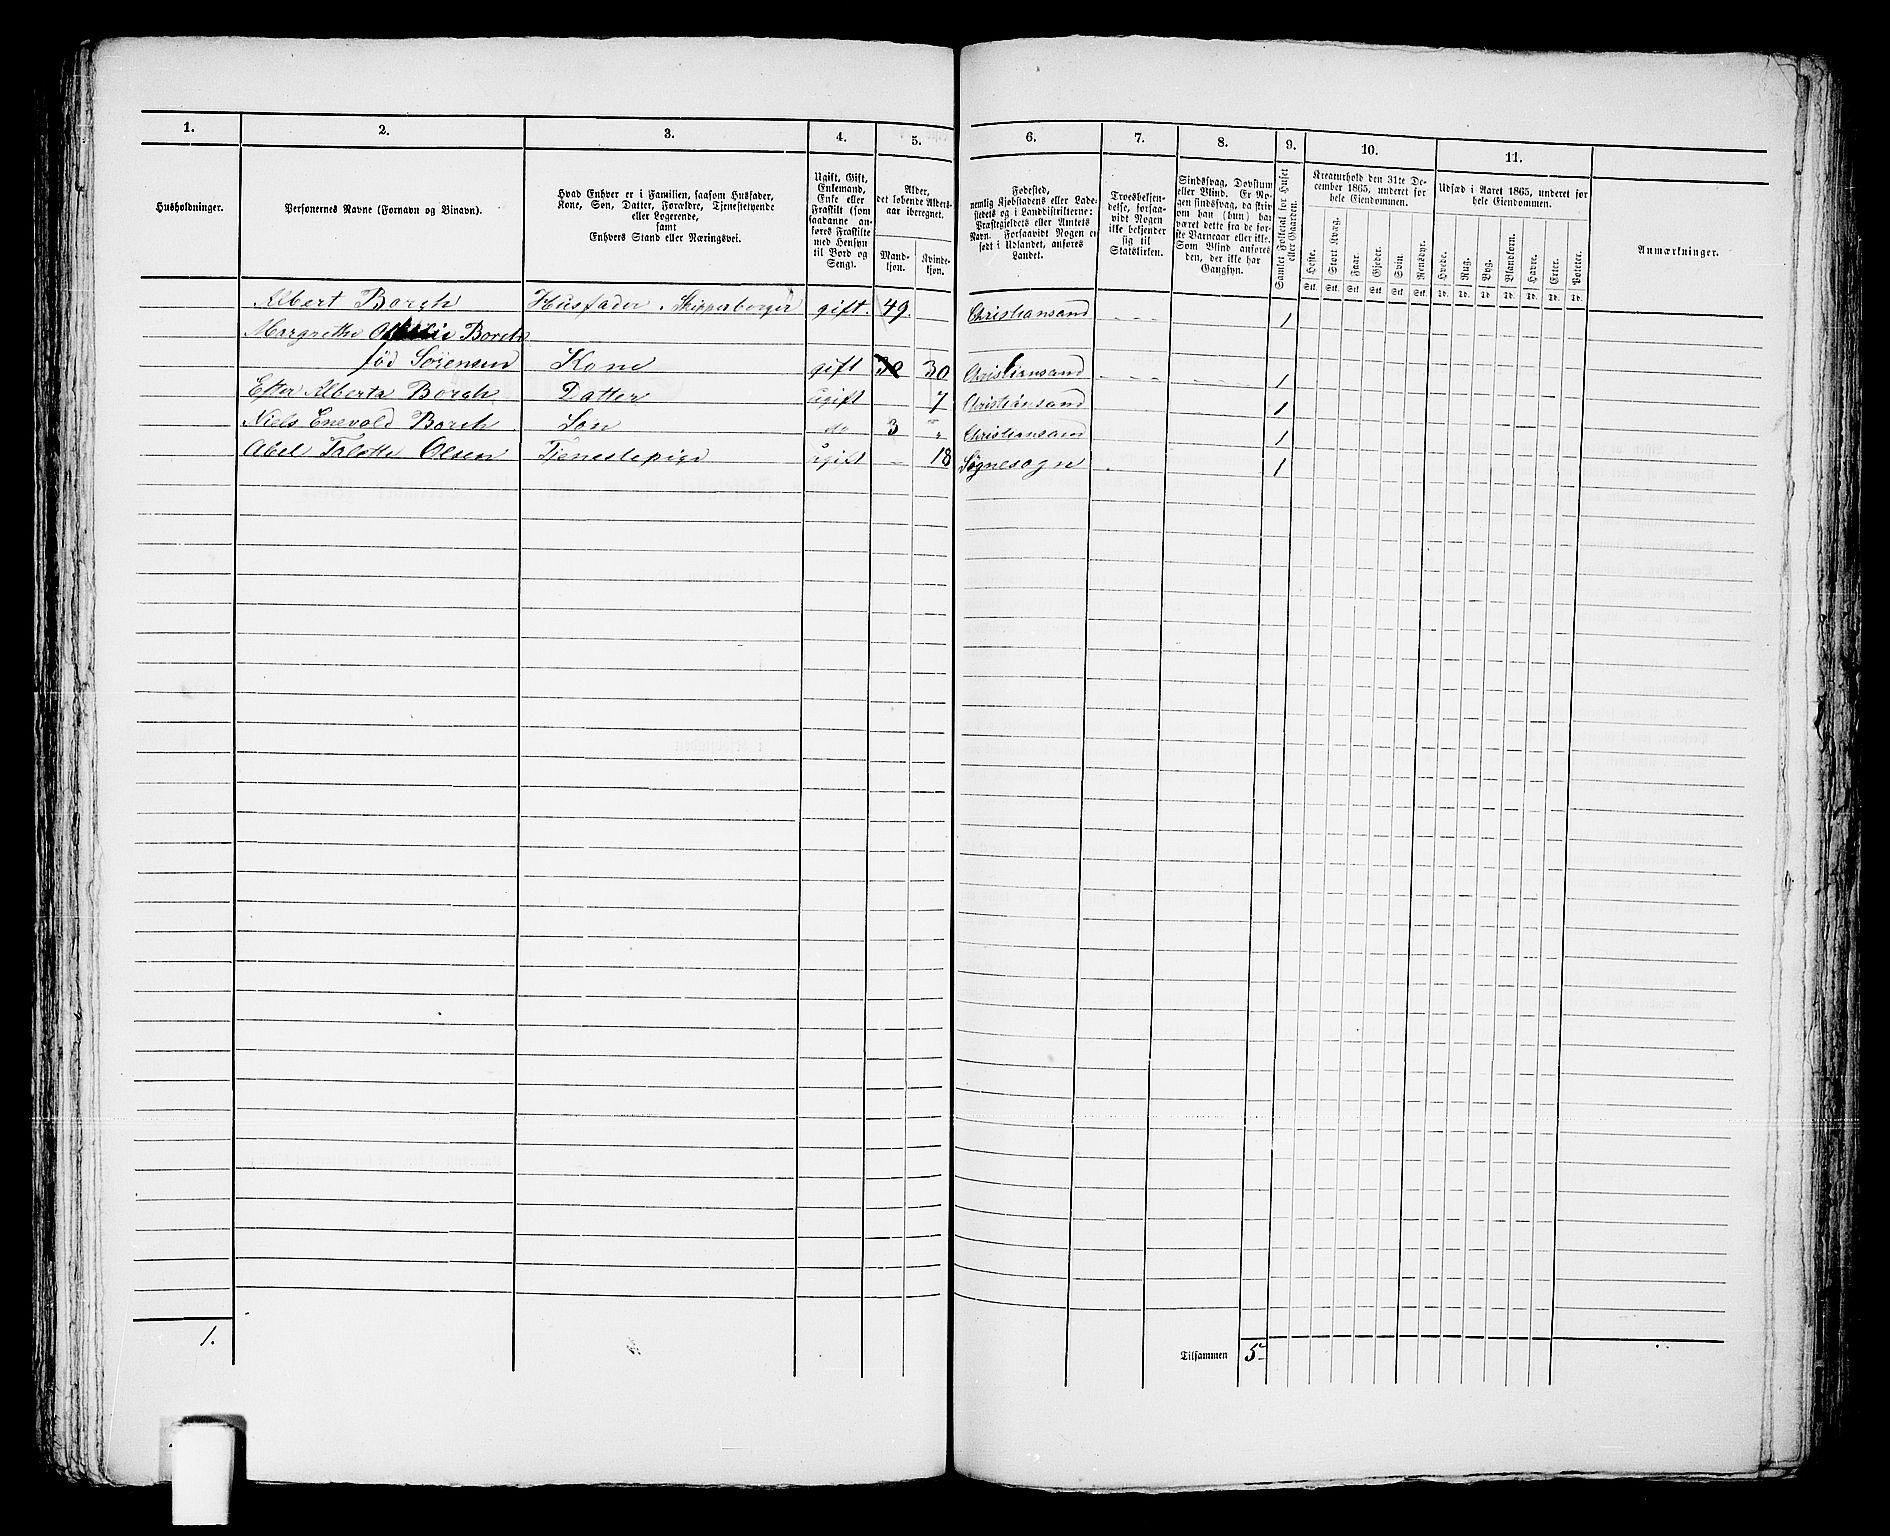 1. 2. 3. 4. 5. 6. 7. 8. 9. 10. 11.
Husholdninger.
Personernes Navne (Fornavn og Binavn).
Hvad Enhver er i Familien, saasom Husfader,
Kone, Søn, Datter, Forældre, Tjenestetyende
eller Logerende,
samt
Enhvers Stand eller Næringsvei.
Ugift, Gift,
Enkemand,
Enke eller
Fraskilt (som
saadanne an-
føres Fraskilte
med Hensyn
til Bord og
Seng).
Alder,
det løbende Alders-
aar iberegnet.
Mand-
kjøn.
Kvinde-
kjøn.
Fødested,
nemlig Kjøbstadens eller Lade-
stedets og i Landdistrikterne:
Præstegjeldets eller Amtets
Navn. Forsaavidt Nogen er
født i Udlandet, anføres
Landet.
Troesbekjen-
delse, forsaa-
vidt Nogen
ikke bekjender
sig til
Statskirken.
Sindssvag, Døvstum
eller Blind. Er No-
gen sindssvag, da skriv
om han (hun) har
været dette fra de før-
ste Barneaar eller ikke.
Som Blind anføres
den, der ikke har
Gangsyn.
Samlet Folketal for Huset
eller Gaarden.
Kreaturhold den 31te De-
cember 1865, underet for
hele Eiendommen.
Heste. Stort Kvæg. Faar. Gjeder. Svin. Rensdyr.
Stk. Stk. Stk. Stk. Stk. Stk.
Udsæd i Aaret 1865, underet for
hele Eiendommen.
Hvede. Rug. Byg. Blandkorn. Havre. Erter. Poteter.
Td. Td. Td. Td. Td. Td. Td.
Anmærkninger.
Albert Borch Husfader. Skipperborger gift. 49. Christiansand 1
Margrethe Borch
født Sørensen Kone gift 30 Christiansand 1
Alberta Borch Datter ugift 7 Christiansand 1
Niels Enevold Borch Søn do 3 " Christiansand 1
Abel Olsen Tjenestepige ugift - 18 Søgnesogn 1
1.
Tilsammen 5